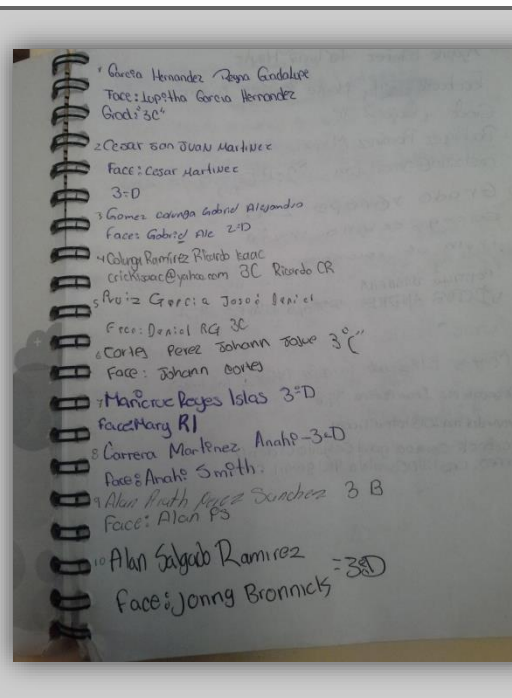 1 Garcia Hernandez Reyna Guadalupe
Face: Lupitha Garcia Hernandez
Grad: 3C"
2 Cesar San Juan Martinez
Face: Cesar Martinez
3=D
3 Gomez Gabriel Alejandro
Face: Gabriel Ale 2=D
4 Colunga Ramírez Ricardo Isaac
crickisaac@yahoo.com 3C Ricardo CR
5 Ruiz Garcia Josué Daniel
Face: Daniel RG 3C
6 Cortes Perez Johann Josue 3°C"
Face: Johann cortes
7 Maricruz Reyes Islas 3=D
Face: Mary RI
8 Carrera Martinez Anahi - 3=D
Face: Anahi Smith.
9 Alan Perez Sanchez 3 B
Face: Alan PS
10 Alan Salgado Ramirez =3=D
Face: Jonny Bronnick